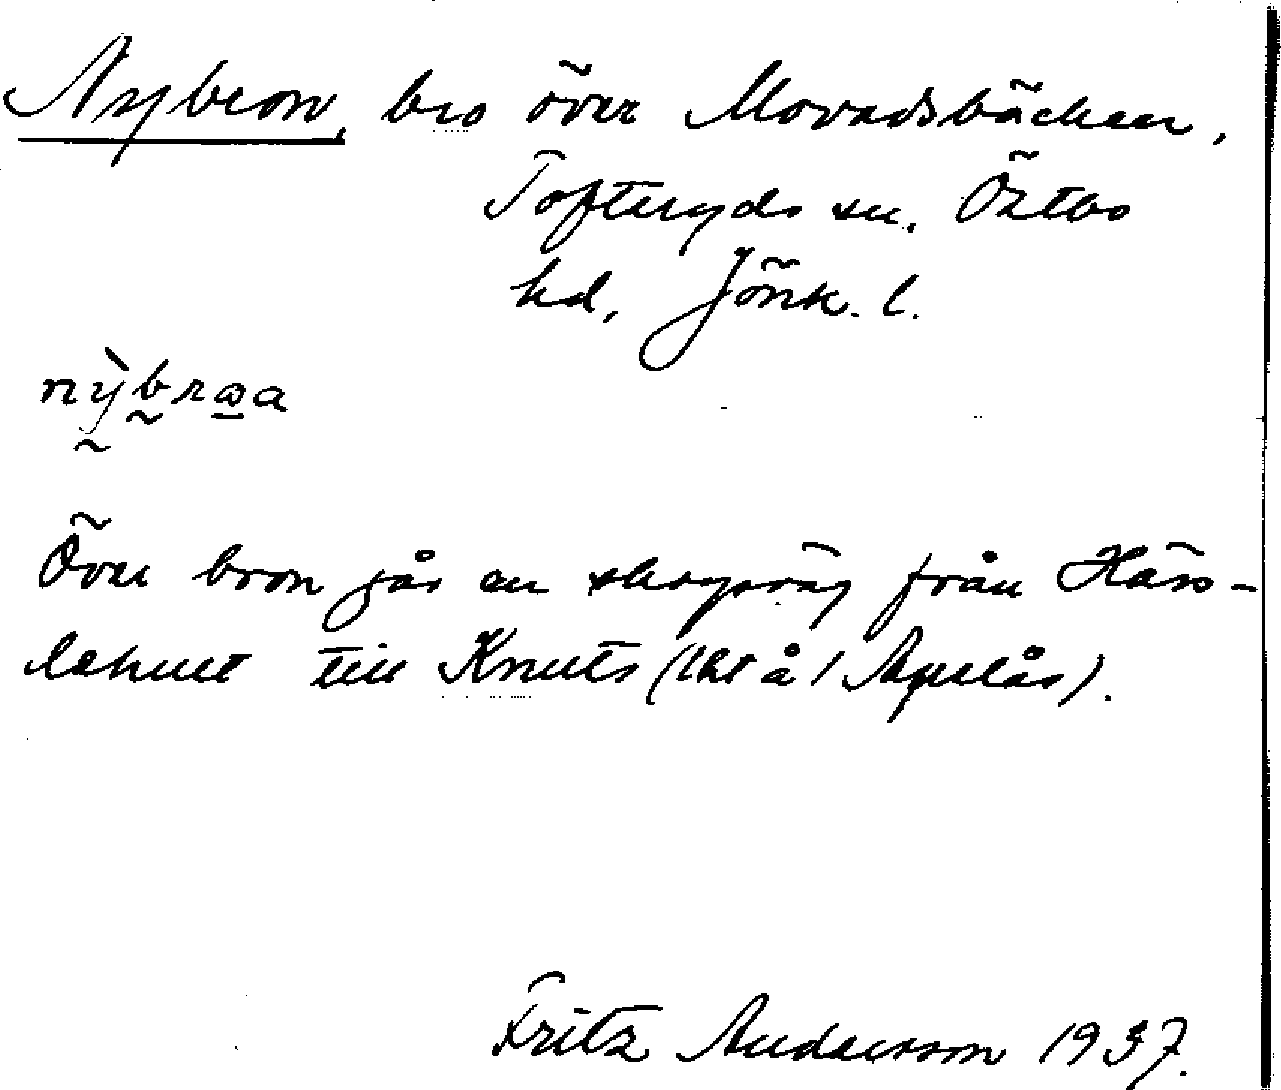 Nybron, bro över Movadsbäcken,
Tofteryds sn. Östbo
hd, Jönk. l.
nỳbroa
Över bron går en skogsväg från Häss-
lehult till Knuts (lht å / Apelås).
Fritz Andersson 1937.